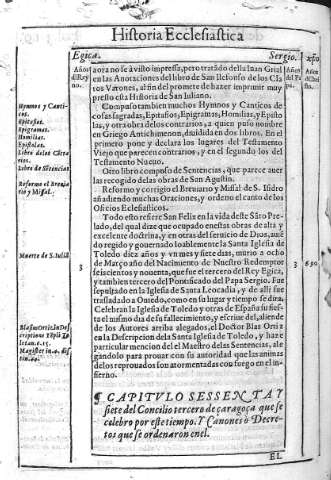 Historia Ecclesiastica
Egica. Sergio. xp̃o
Años del Reyno.
Años del Papa.
aora no se à visto impressa, pero tratado della Iuan Griel
en las Anotaciones del libro de San Ilefonso de los Claros
Varones, al fin del promete de hazer imprimir muy
presto esta Historia de San Iuliano.
Hymnos y Canticos.
Epitafios.
Epigramas.
Homilias.
Epistolas.
Libro delos Cōtrarios.
Compuso tambien muchos Hymnos y Canticos de
cosas sagradas, Epitafios, Epigramas, Homilias, Epistolas,
y otra obra delos contrarios, a quien puso nombre
en Griego Antichimenon, diuidida en dos libros. En el
primero pone y declara los lugares del Testamento
Viejo que parecen contrarios, y en el segundo los del
Testamento Nueuo.
Libro de Sētencias.
Otro libro compuso de Sentencias, que parece auer
las recogido delas obras de San Agustin.
Reformo el Breuiario y Missal.
Reformo y corrigio el Breuiario y Missal de S. Isidro
añadiendo muchas Oraciones, y ordeno el canto de los
Oficios Eclesiasticos.
Todo esto refiere San Felix en la vida deste Sāto Prelado,
del qual dize que ocupado en estas obras de alta y
excelente doctrina, y en otras del seruicio de Dios, auiēdo
regido y gouernado loablemente la Santa Iglesia de
Muerte de S. Iuliā
Toledo diez años y vn mes y siete dias, murio a ocho
3 3 690
de Março año del Nacimiento de Nuestro Redemptor
seiscientos y nouenta, que fue el tercero del Rey Egica,
y tambien tercero del Pontificado del Papa Sergio. Fue
sepultado en la Iglesia de Santa Leocadia, y de alli fue
trasladado a Ouiedo, como en su lugar y tiempo se dira.
Celebran la Iglesia de Toledo y otras de España su fiesta
el mismo dia de su fallecimiento, y escriue del, aliende
de los Autores arriba alegados, el Doctor Blas Ortiz
en la Descripcion dela Santa Iglesia de Toledo, y haze
particular mencion del el Maestro delas Sentencias, alegándolo
para prouar con su autoridad que las animas
delos reprouados son atormentadas con fuego en el infierno.
¶ CAPITVLO SESSENTA Y
siete del Concilio tercero de çaragoça que se
celebro por este tiempo. Y Canones o Decretos
que se ordenaron en el.
EL